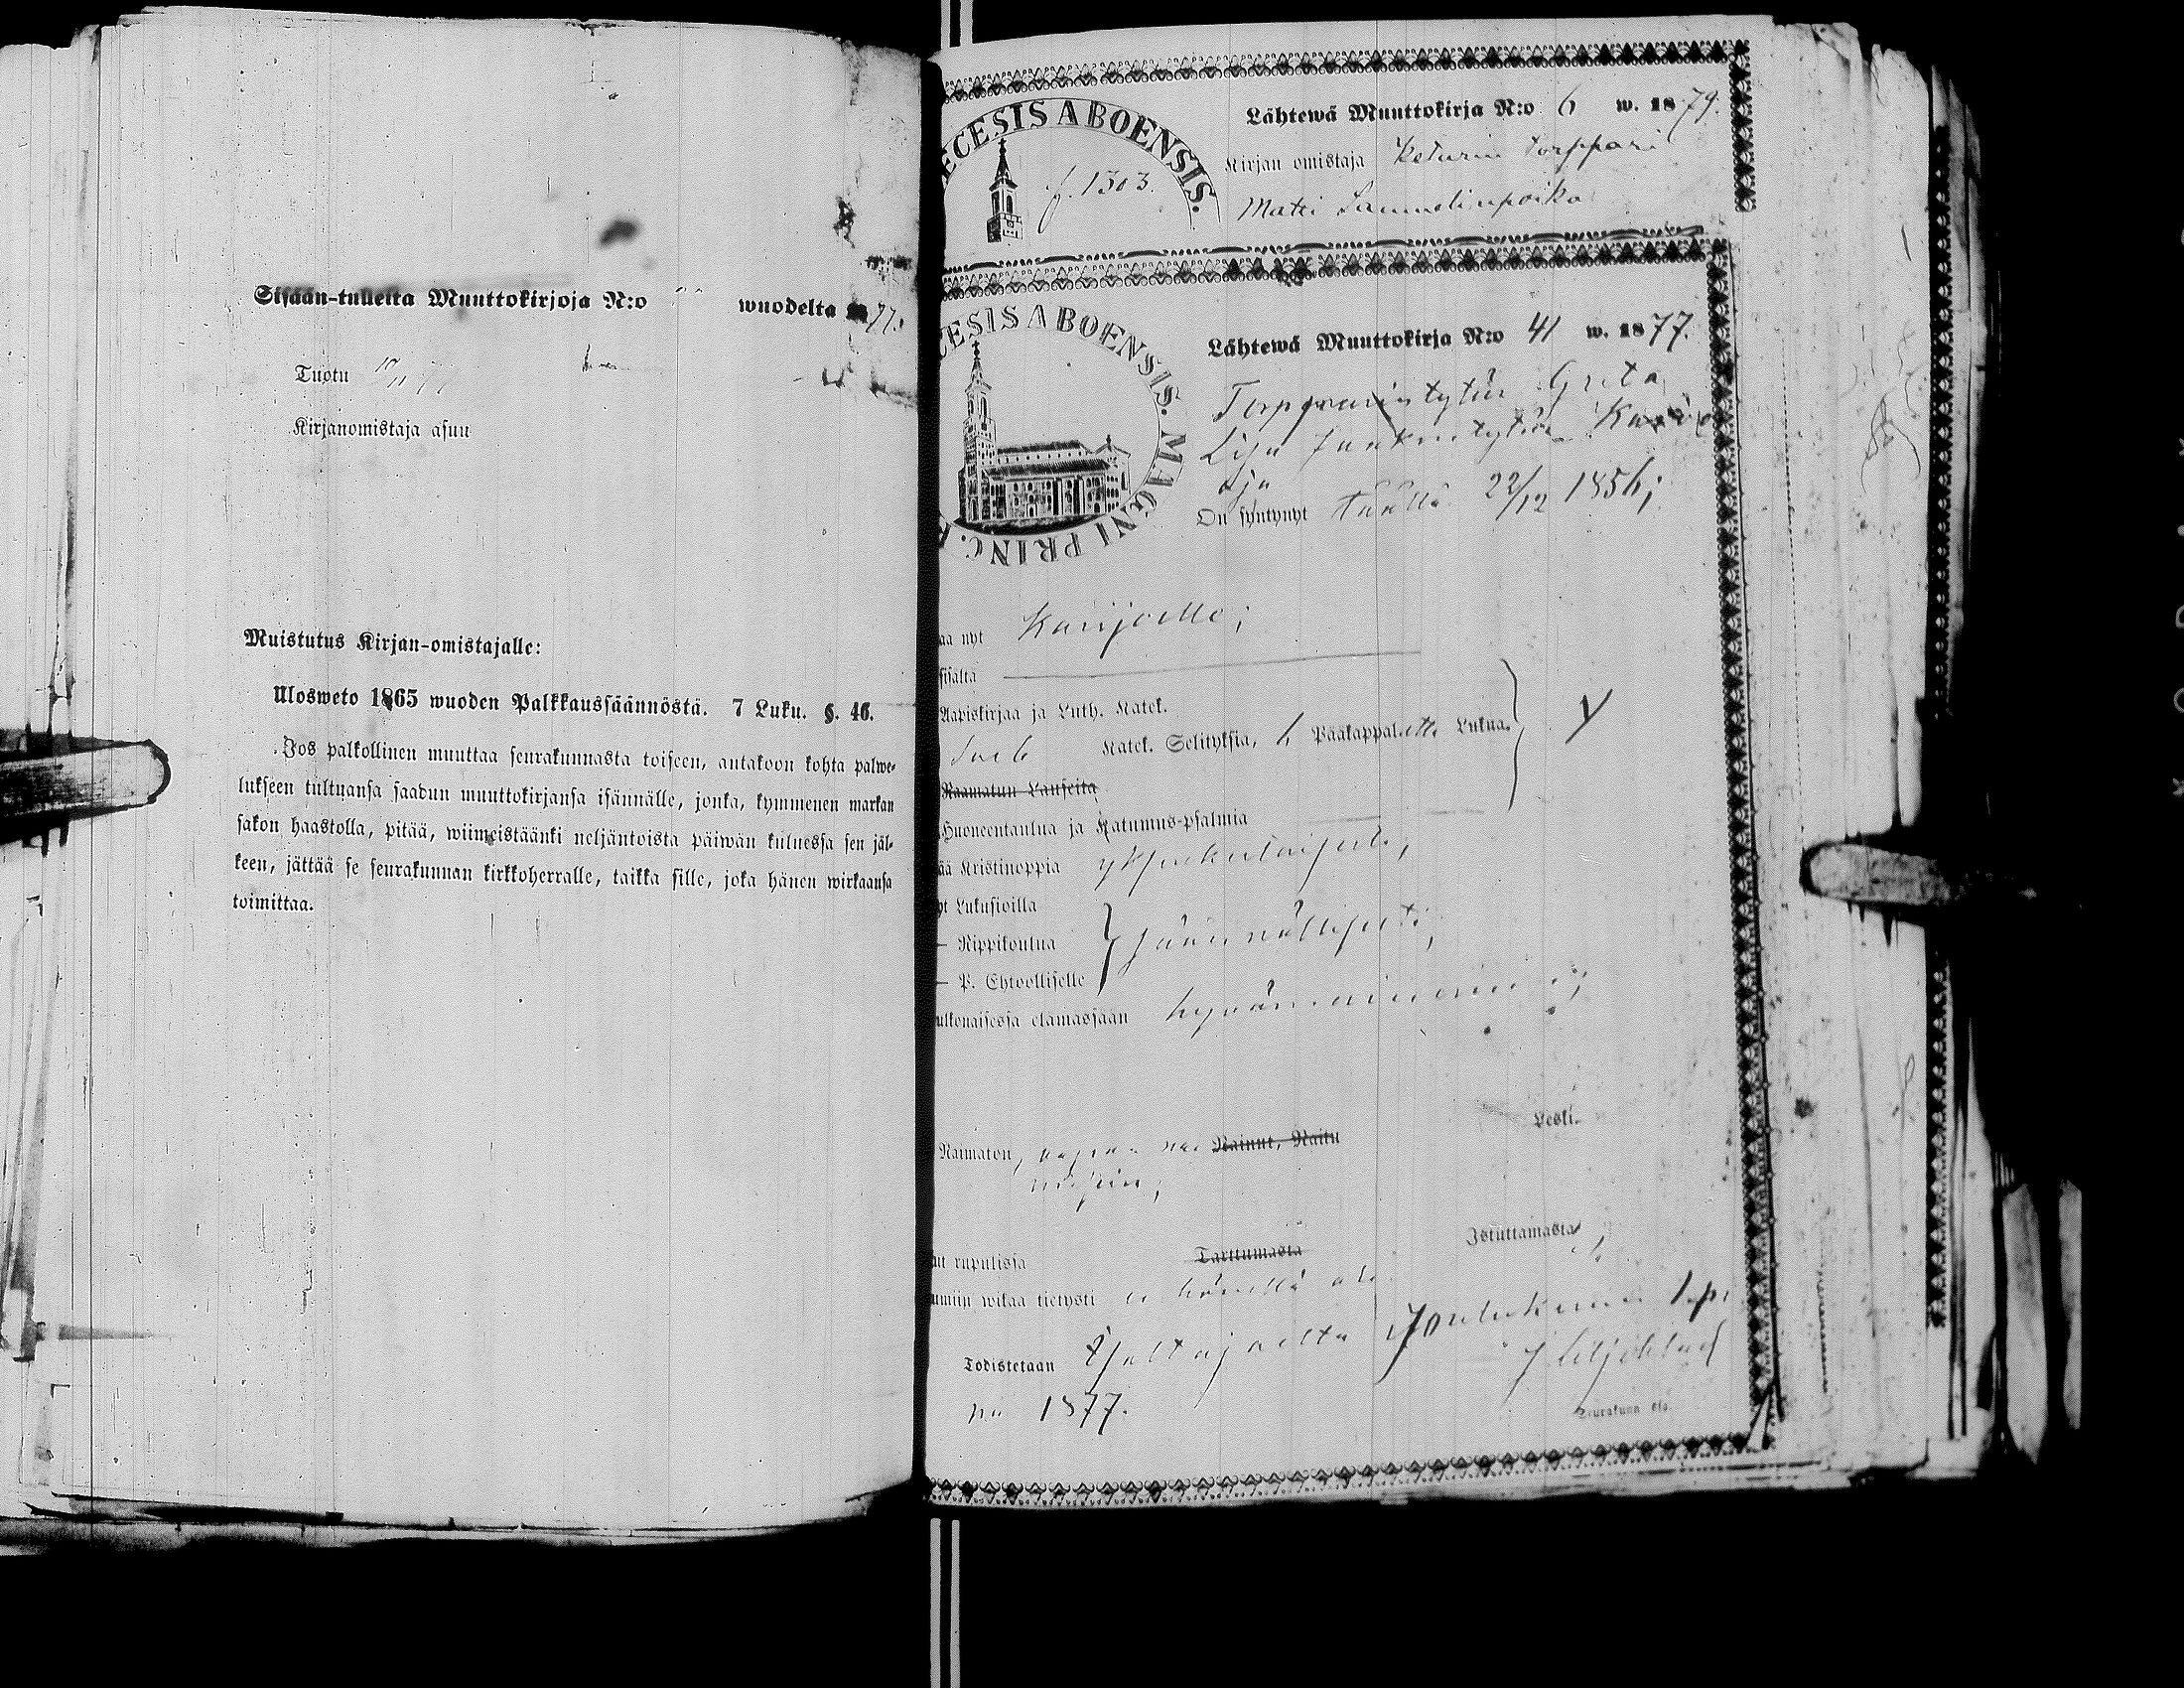 Sisään-tulleita Muuttokirjoja N:o wuodelta 1877.
Tuotu
Kirjanomistaja asuu
Muistutus Kirjan-omistajalle:
Ulosweto 1865 wuoden Palkkaussäännöstä. 7 Luku. §. 46.
Jos palkollinen muuttaa seurakunnasta toiseen, antakoon kohta palwe-
lukseen tultuansa saadun muuttokirjansa isännälle, jonka, kymmenen markan
sakon haastolla, pitää, wiimeistäänki neljäntoista päiwän kuluessa sen jäl-
keen, jättää se seurakunnan kirkkoherralle, taikka sille, joka hänen wirkaansa
toimittaa.
ECESIS ABOENSIS.
f. 1303.
Lähtewä Muuttokirja N:o 6 w. 1879.
Kirjan omistaja Keturin torppari
Matti Samuelinpoika
CESIS ABOENSIS. MAGNI PRINC. F
Lähtewä Muuttokirja N:o 41 w. 1877.
Torpparintytär Greta
Liisa Jaakontytär
On syntynyt täällä 22/12 1856;
aa nyt Karijoelle;
sisältä
Aapiskirjaa ja Luth. Katek.
Katek. Selityksiä, 6 Pääkappaletta Lukua.
Raamatun Lauseita
Huoneentaulua ja Katumus-psalmia
ää Kristinoppia yksinkertaisesti,
yt Lukusioilla
– Rippikoulua säännöllisesti;
– P. Ehtoolliselle
ulkonaisessa elämässään hywämaineinen;
Leski.
Naimaton, Nainut, Naitu
ut rupulissa Tarttumasta Istuttamasta
umiin wikaa tietysti ei hänellä ole.
Todistetaan Joulukuun 1 p:
nä 1877.
Seurakunn